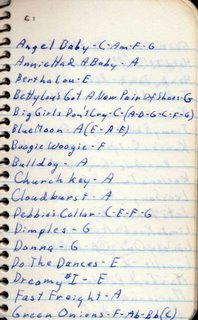 Angel Baby-C-Am-F-G
Annie Had A Baby - A
Bertha Lou-E
Bettylou's Got A New Pair Of Shoes-G
Big Girls Don't Cry-C-(A-D-G-C-F-G)
Blue Moon A(E-A-E)
Boogie Woogie-F
Bulldog - A
Church Key-A
Cloudburst-A
Debbie's Collar-C-E-F-G
Dimples-G
Donna-G
Do The Dances-E
Dreamy #1-E
Fast Freight-A
Green Onions-F-Ab-Bb(C)